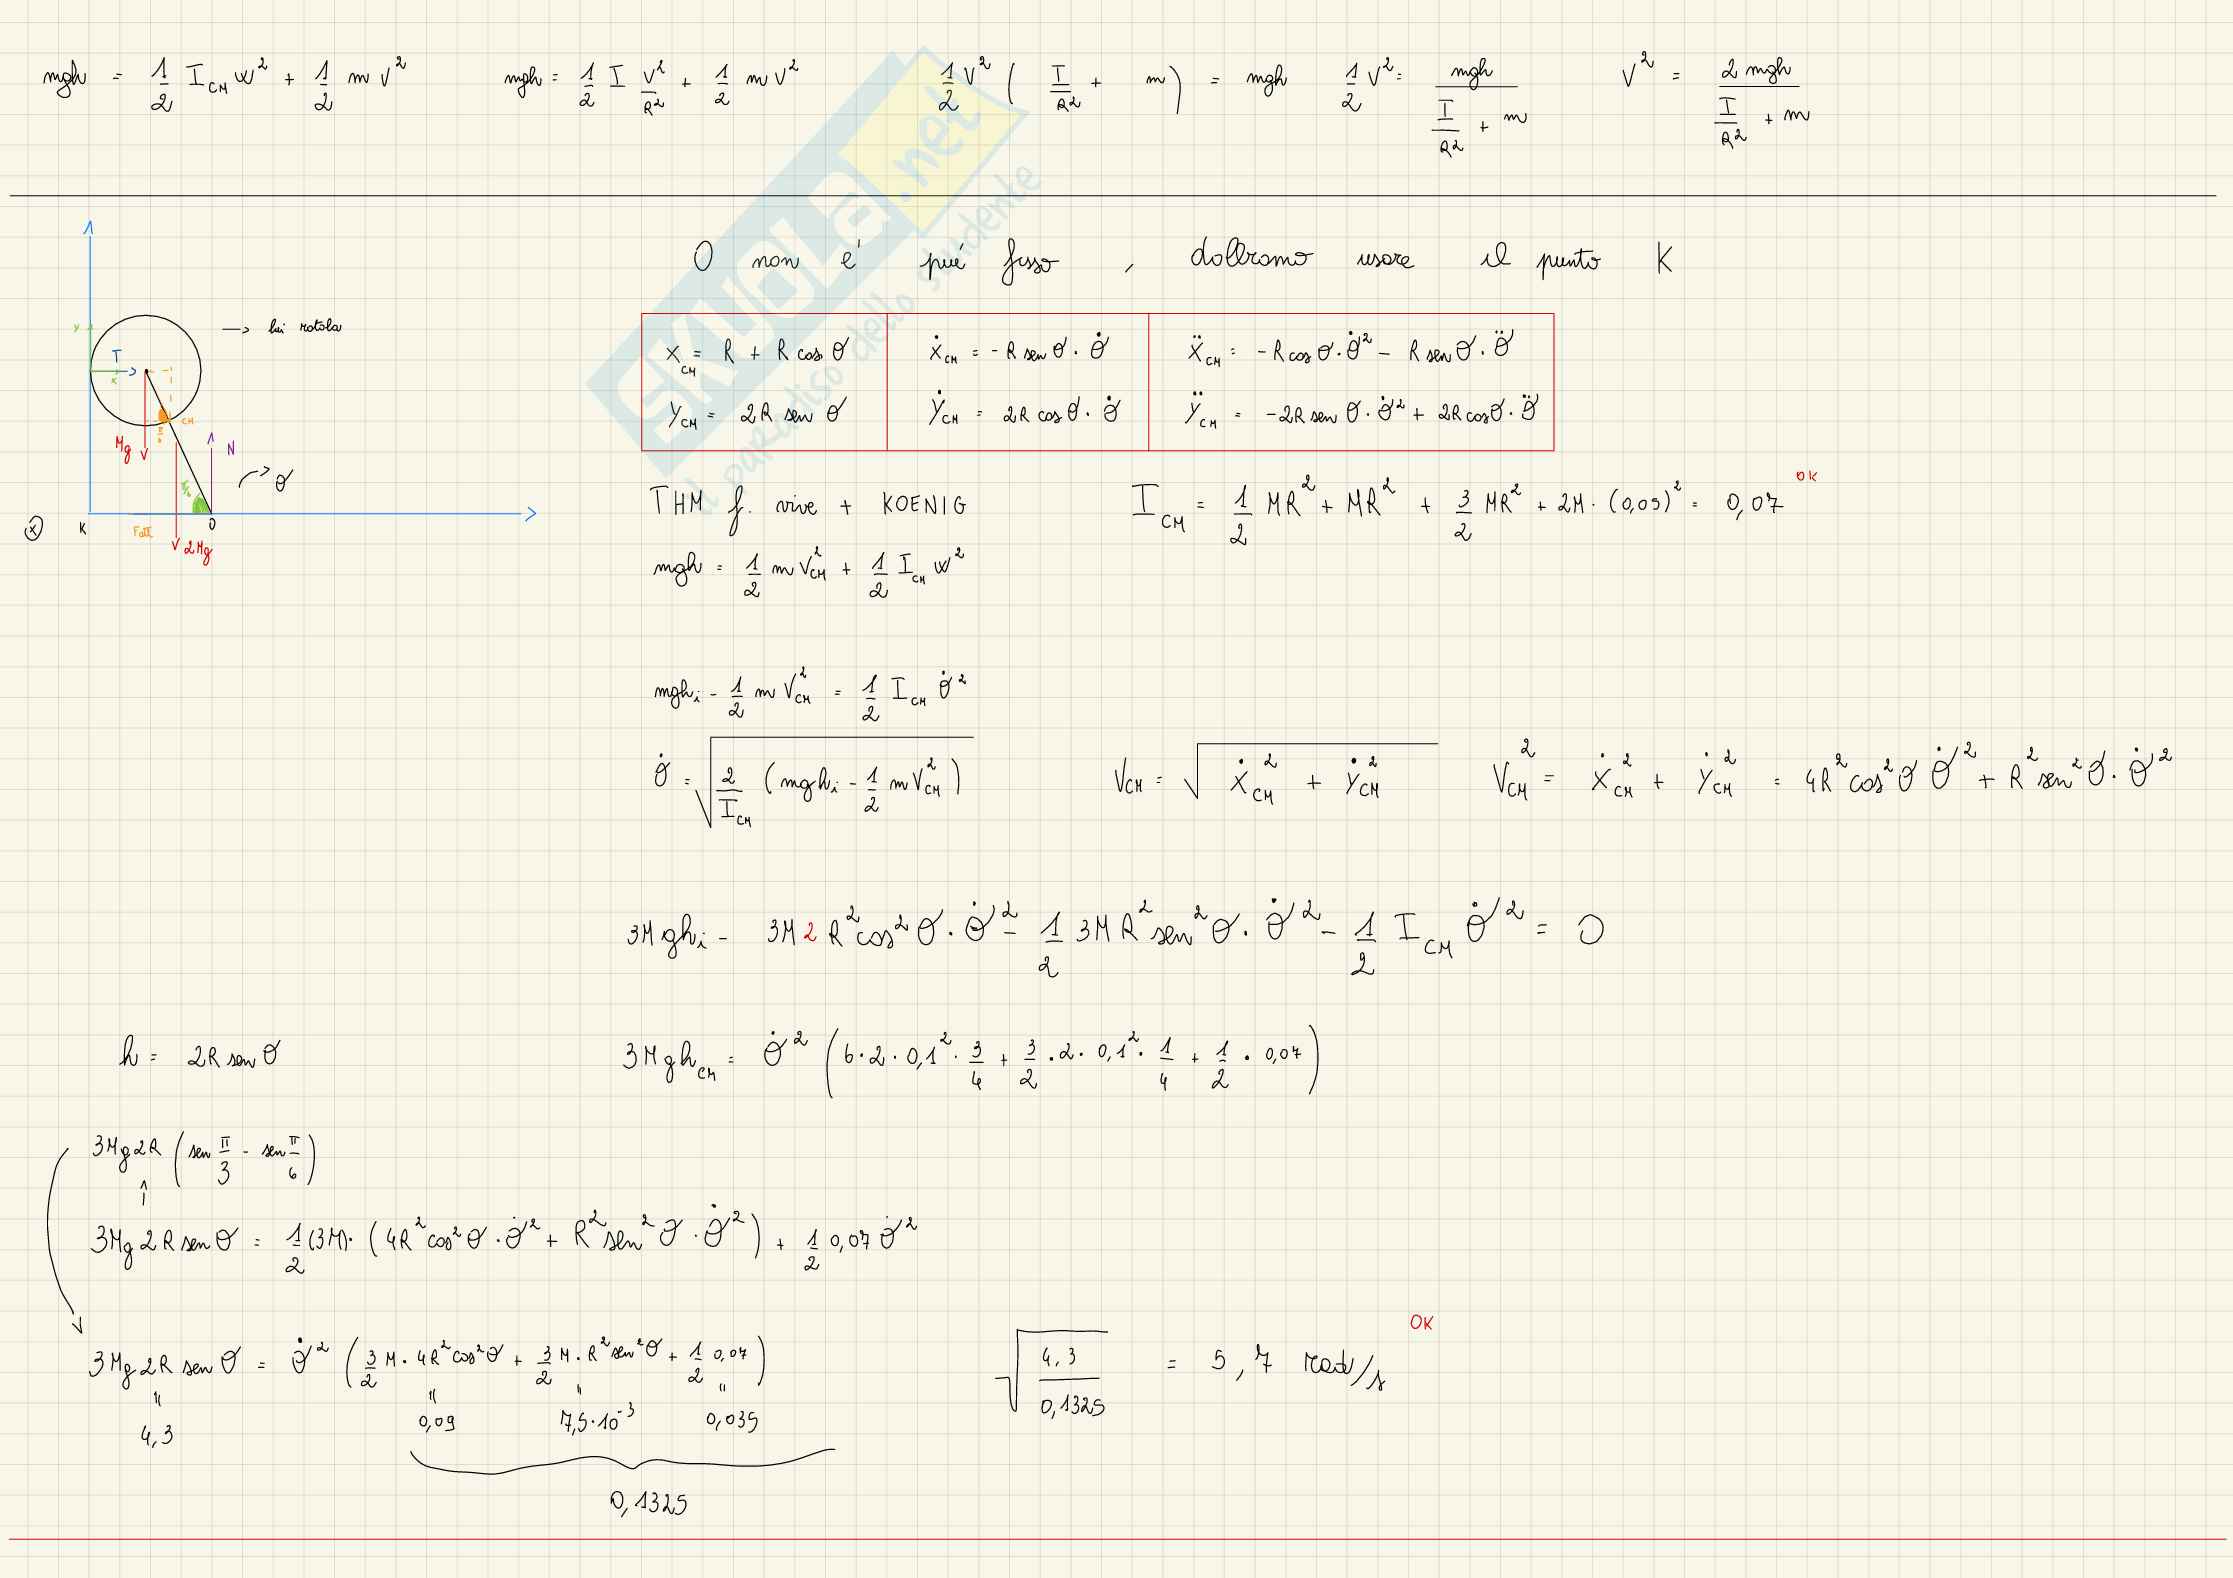 mgh = 1/2 I_CM w² + 1/2 m v²   mgh = 1/2 I v²/R² + 1/2 m v²   1/2 v² ( I/R² + m ) = mgh   1/2 v² = mgh / (I/R² + m)   v² = 2 mgh / (I/R² + m)
SKUOLA.net
il paradiso dello studente
O non é pié fisso , dobbiamo usare il punto K
y
→ lui rotola
T
x
CM
Mg
N
θ
K
O
Fatt
2Mg
x_CM = R + R cos θ   ẋ_CM = - R sen θ · θ̇   ẍ_CM = - R cos θ · θ̇² - R sen θ · θ̈
y_CM = 2R sen θ   ẏ_CM = 2R cos θ · θ̇   ÿ_CM = -2R sen θ · θ̇² + 2R cos θ · θ̈
THM f. vive + KOENIG   I_CM = 1/2 MR² + MR² + 3/2 MR² + 2M · (0,05)² = 0,07 OK
mgh = 1/2 m V_CM² + 1/2 I_CM w²
mgh_i - 1/2 m V_CM² = 1/2 I_CM θ̇²
θ̇ = √( 2/I_CM ( mgh_i - 1/2 m V_CM² ) )   V_CM = √( ẋ_CM² + ẏ_CM² )   V_CM² = ẋ_CM² + ẏ_CM² = 4R² cos² θ θ̇² + R² sen² θ · θ̇²
3Mgh_i - 3M 2 R² cos² θ · θ̇² - 1/2 3M R² sen² θ · θ̇² - 1/2 I_CM θ̇² = 0
h = 2R sen θ   3Mgh_CM = θ̇² ( 6 · 2 · 0,1² · 3/4 + 3/2 · 2 · 0,1² · 1/4 + 1/2 · 0,07 )
3Mg2R ( sen π/3 - sen π/6 )
3Mg2R sen θ = 1/2 (3M) · ( 4R² cos² θ · θ̇² + R² sen² θ · θ̇² ) + 1/2 0,07 θ̇²
3Mg2R sen θ = θ̇² ( 3/2 M · 4R² cos² θ + 3/2 M · R² sen² θ + 1/2 0,07 )   √( 4,3 / 0,1325 ) = 5,7 rad/s OK
4,3   0,09   7,5·10⁻³   0,035
0,1325